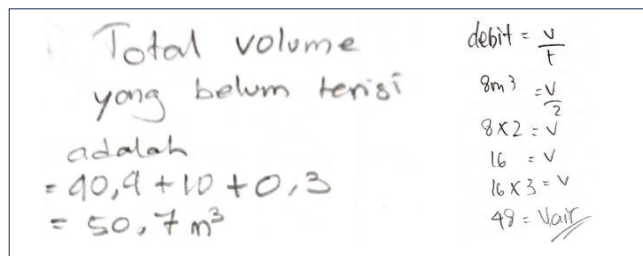 Total volume
yang belum terisi
adalah
= 40,4 + 10 + 0,3
= 50,7 m³
debit = v/t
8m³ = v/2
8 x 2 = v
16 = v
16 x 3 = v
48 = Vair